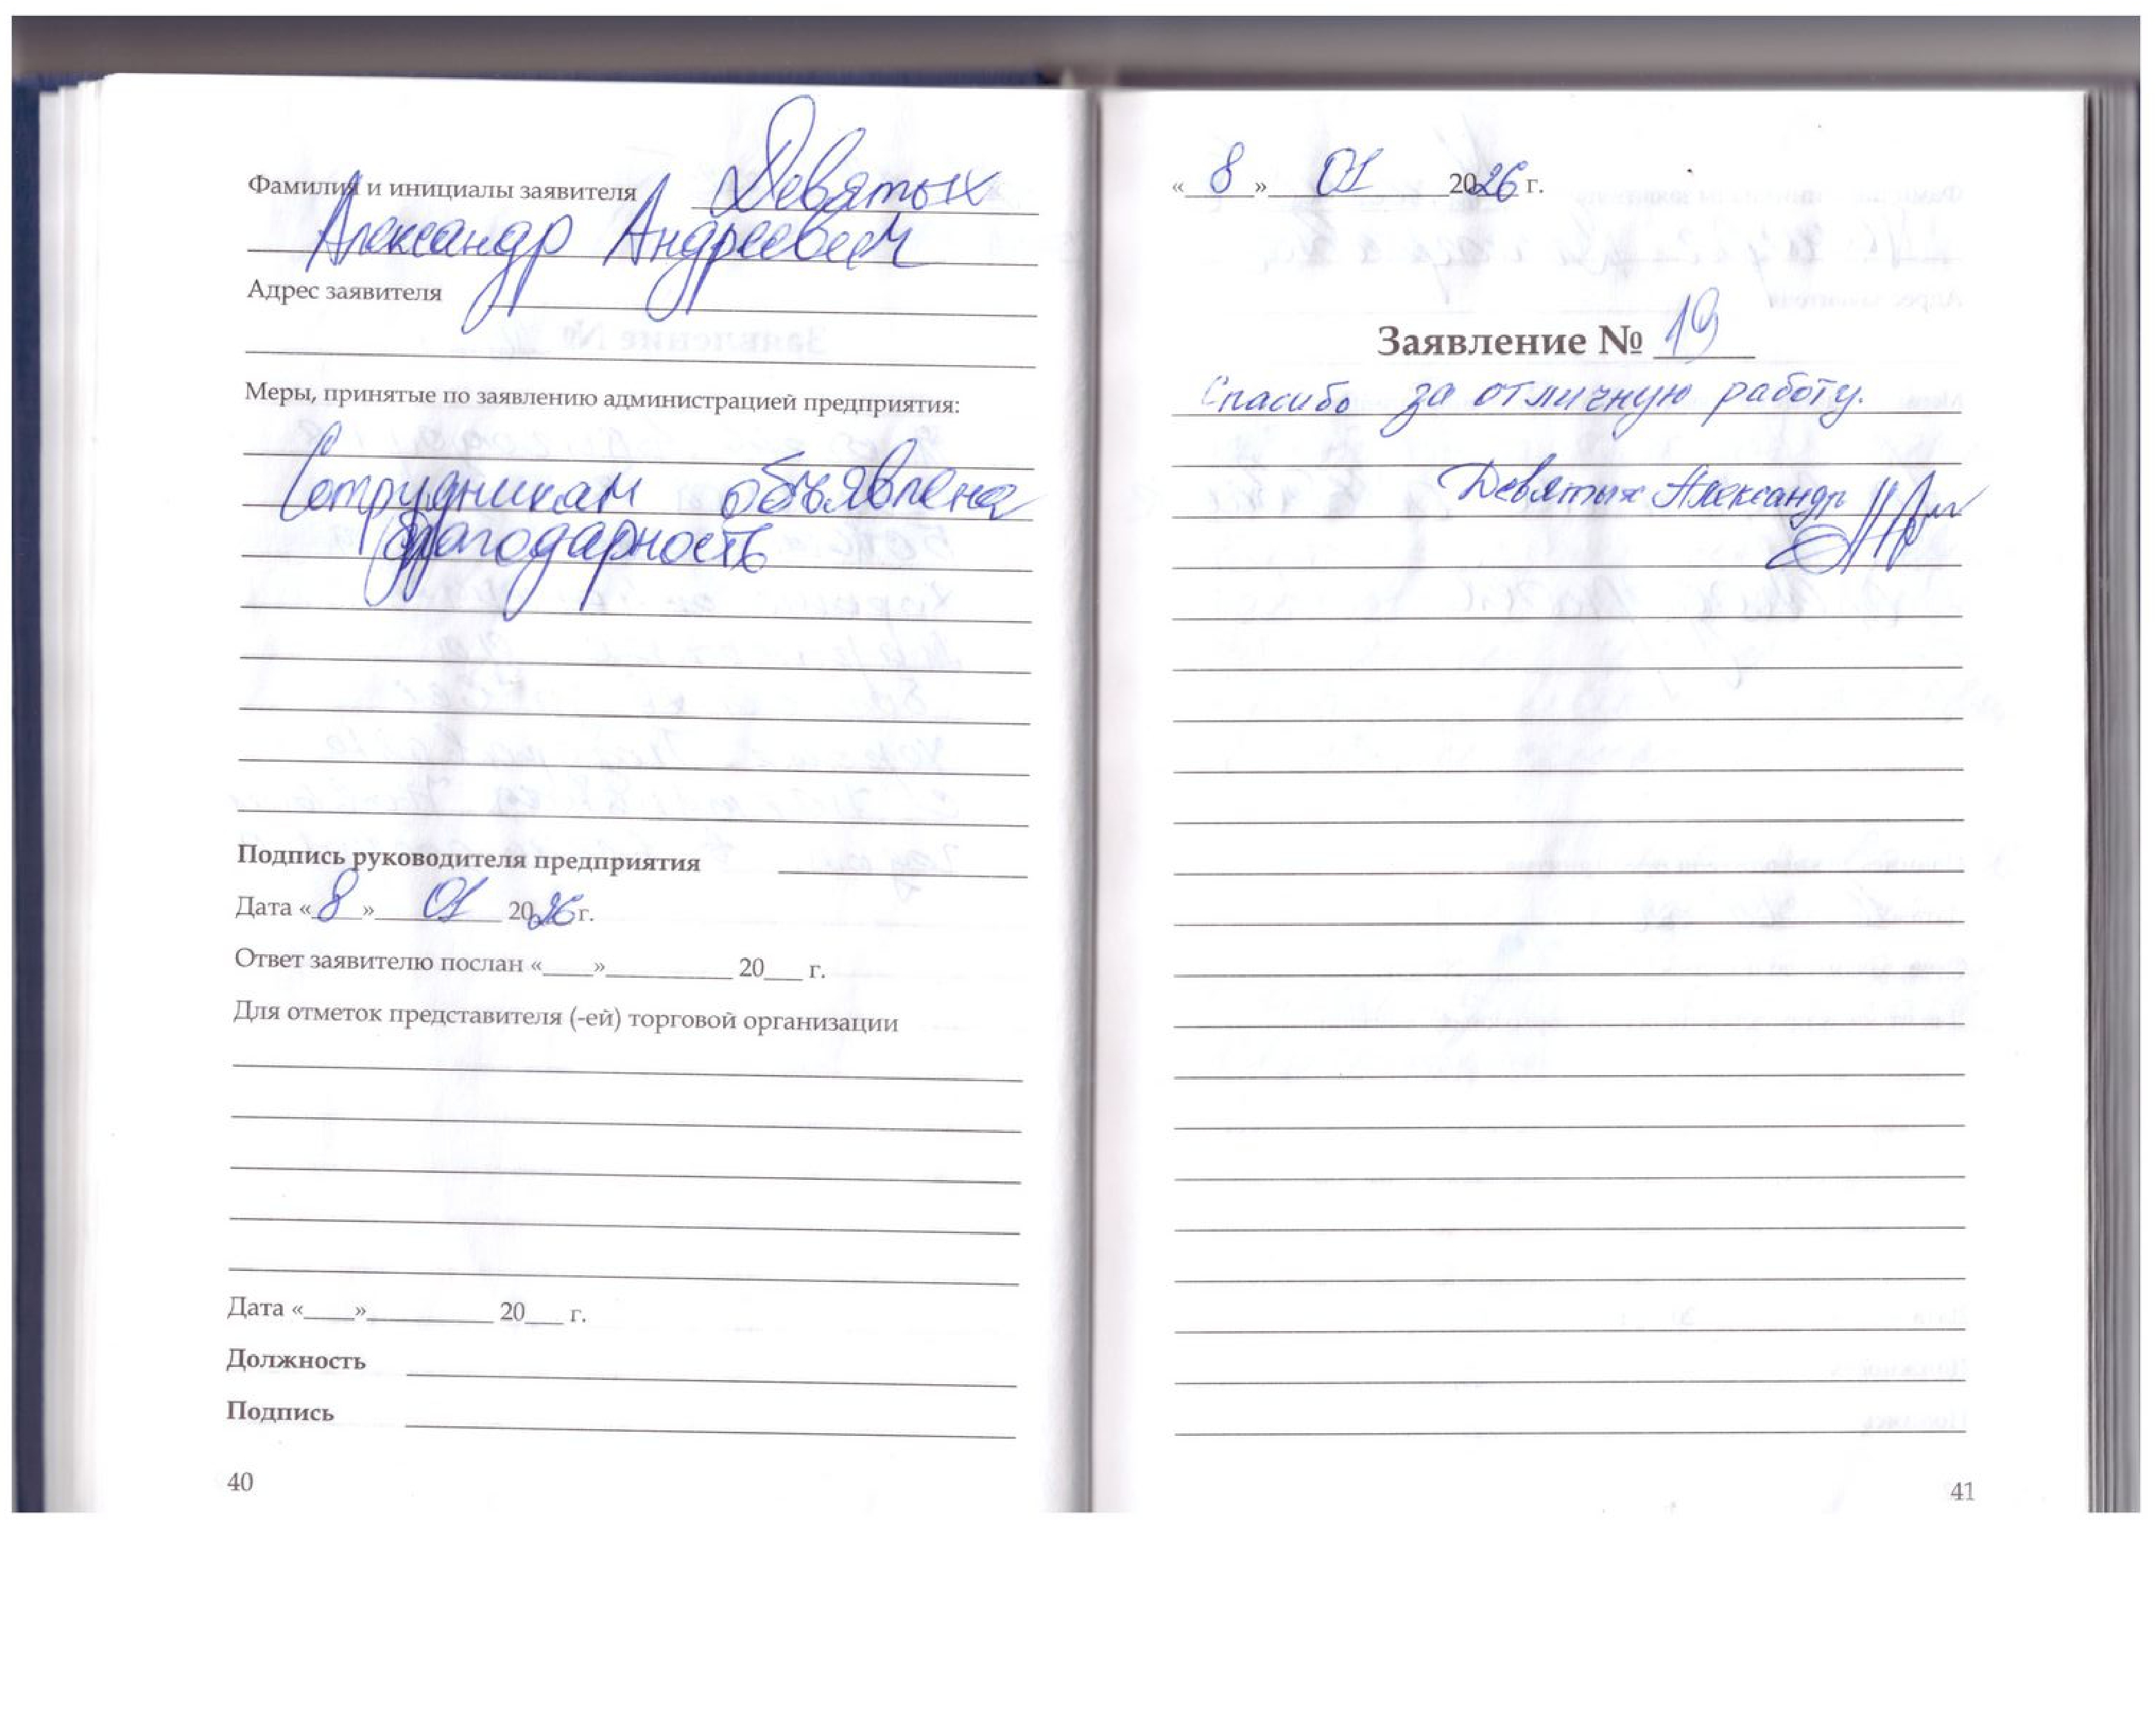 Фамилия и инициалы заявителя Девятых
Александр Андреевич
Адрес заявителя
Меры, принятые по заявлению администрацией предприятия:
Сотрудникам объявлена
благодарность
Подпись руководителя предприятия
Дата «8» 01 2026 г.
Ответ заявителю послан «____»__________ 20___ г.
Для отметок представителя (-ей) торговой организации
Дата «____»__________ 20___ г.
Должность
Подпись
40
«8» 01 2026 г.
Заявление № 19
Спасибо за отличную работу.
Девятых Александр
41